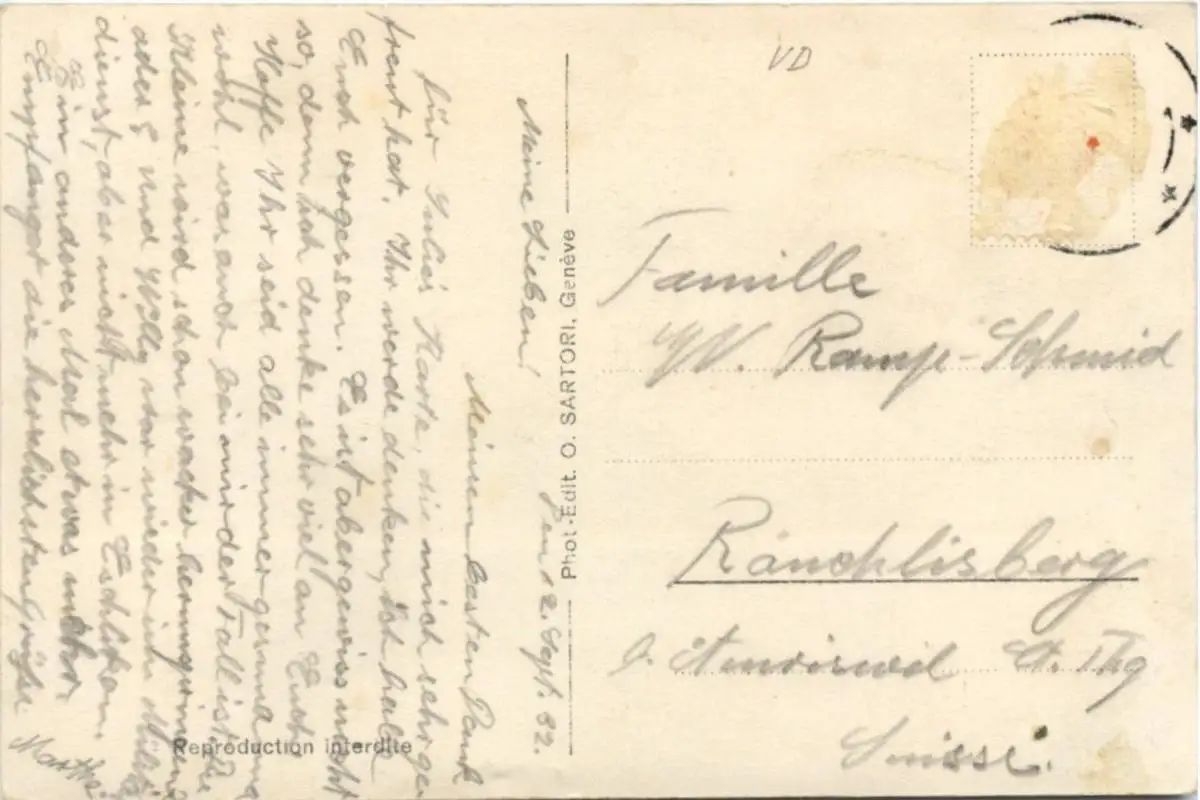 VD
Den 12. Sept. 32.
Meine Lieben!
Meinen besten Dank
für Julie's Karte, die mich sehr ge-
freut hat. Ihr werdet denken, ich hab
Euch vergessen. Es ist aber gewiss nicht
so, denn ich denke sehr viel an Euch.
Hoffe Ihr seid alle immer gesund
wohl, was auch bei mir der Fall ist. Die
Kleine wird schon wacker herumspringen
oder? Und Willy war wieder im Militär
dienst, aber nicht mehr in Eschlikon.
Ein anderes Mal etwas mehr.
Empfanget die herzlichsten Grüsse
Martha
Phot.-Edit. O. SARTORI, Genève
Reproduction interdite
Famille
W. Ramp-Schmid
Räuchlisberg
b. Amriswil Ct. Thg
Suisse.